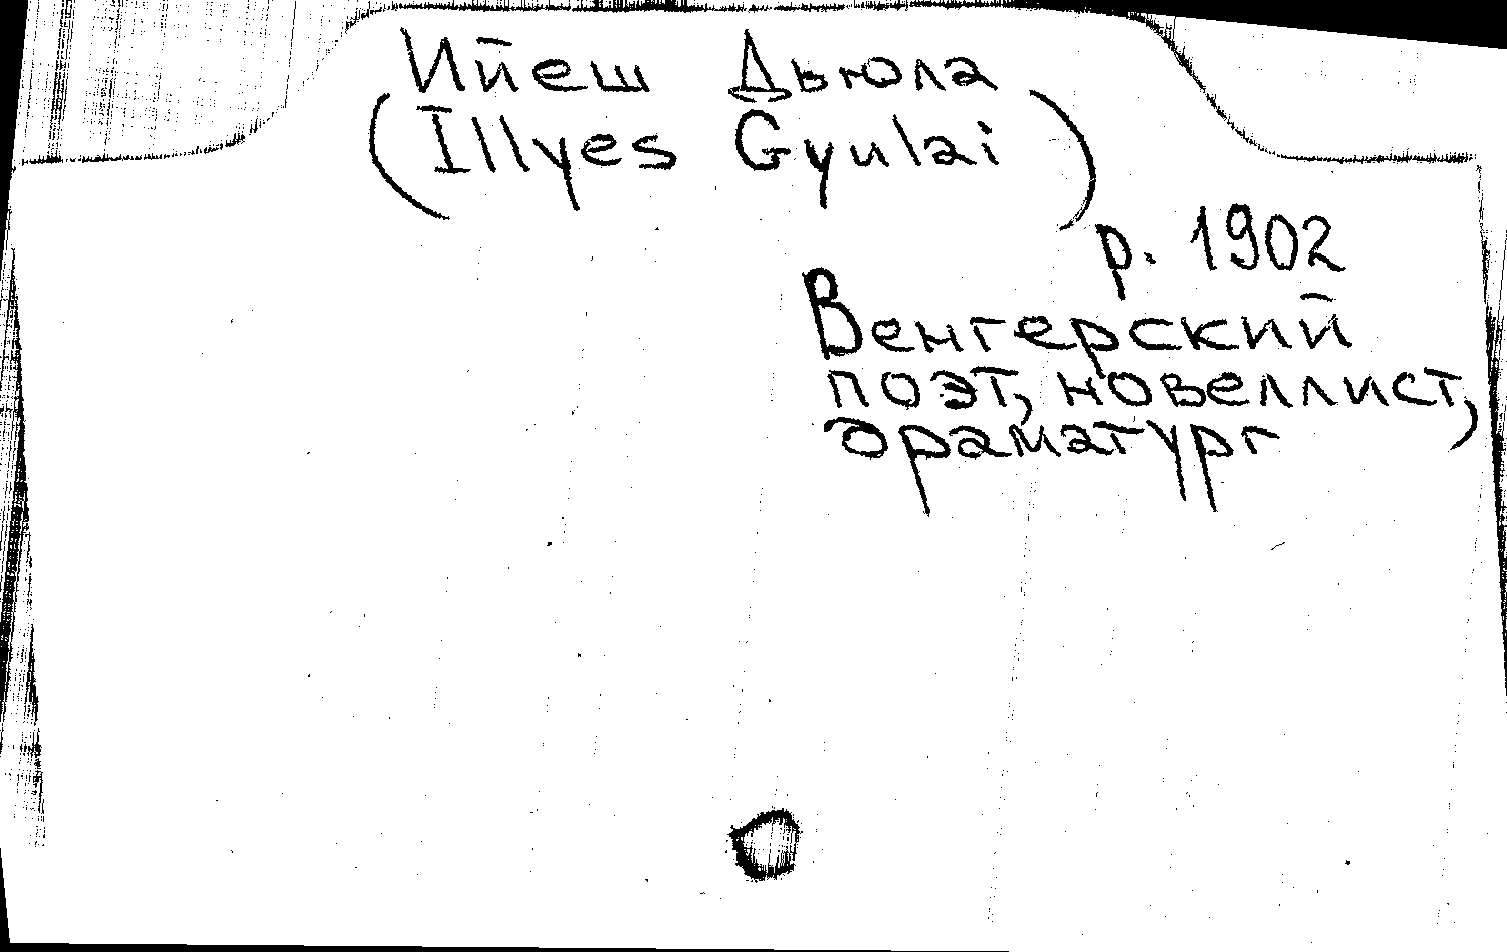 Ийеш Дьюла
(Illyes Gyulai)
р. 1902
Венгерский
поэт, новеллист,
драматург